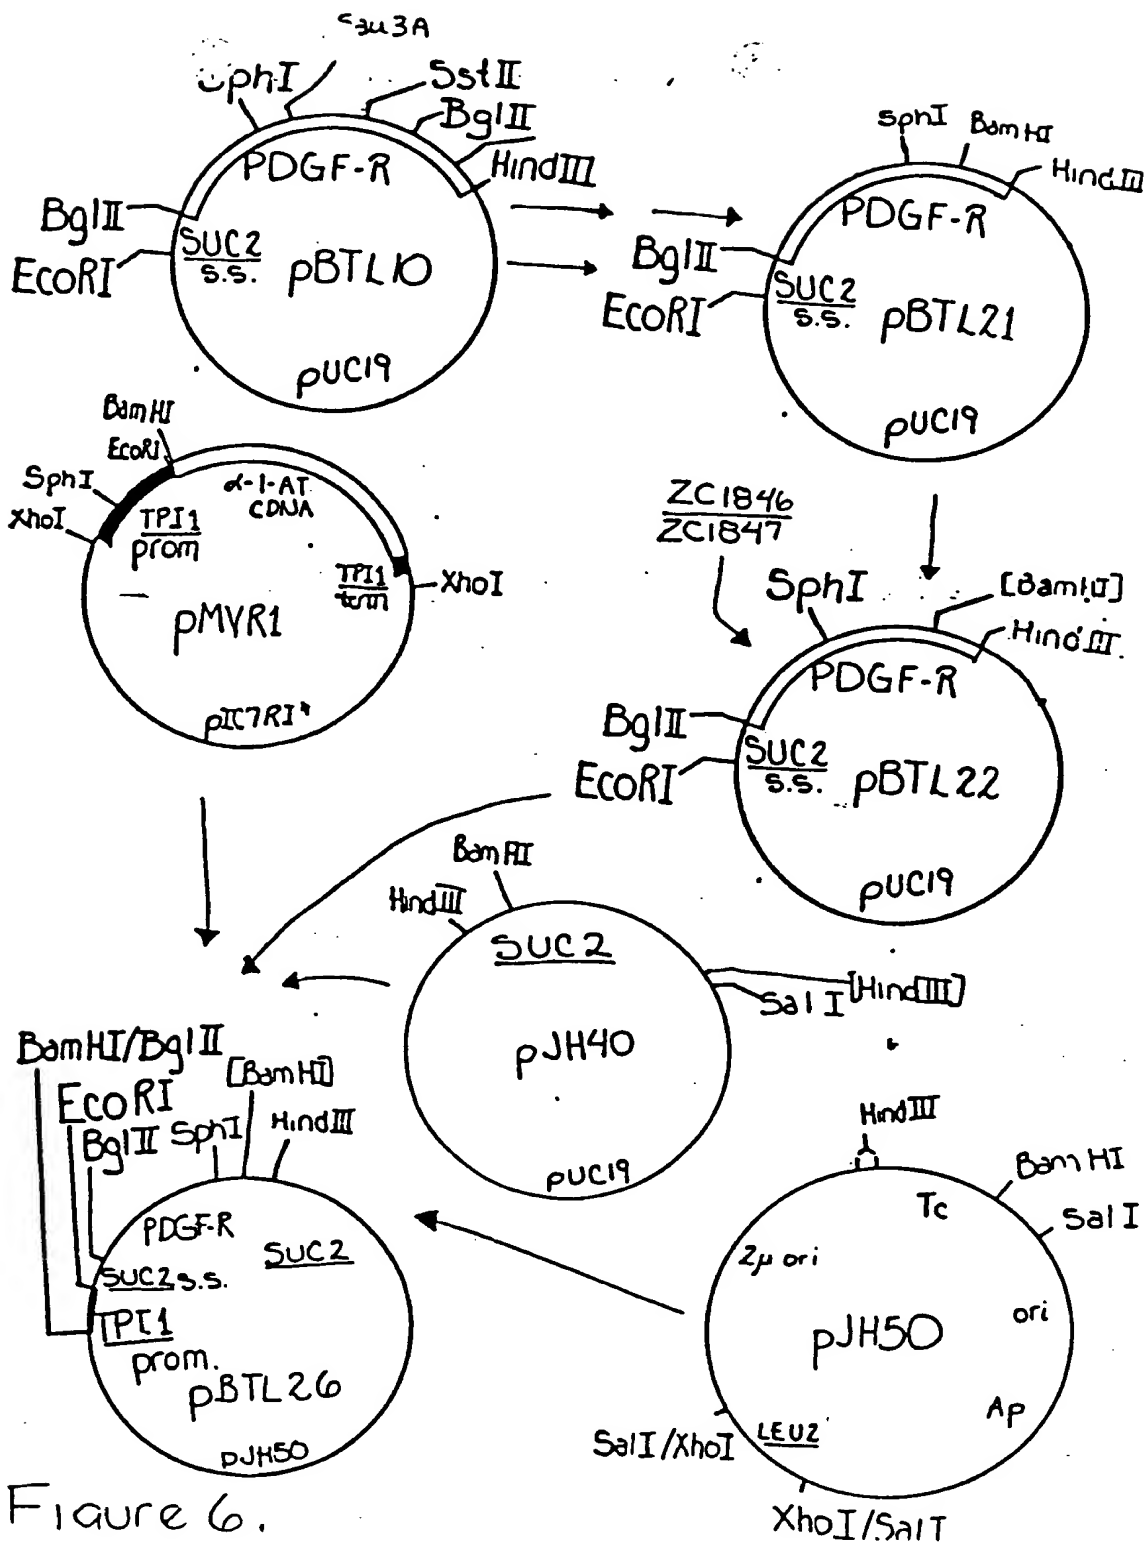 Sau3A
SphI
SstII
BglII
HindIII
PDGF-R
BglII
EcoRI
SUC2
s.s.
pBTL10
pUC19
SphI
BamHI
HindIII
PDGF-R
BglII
EcoRI
SUC2
s.s.
pBTL21
pUC19
BamHI
EcoRI
SphI
XhoI
α-1-AT
CDNA
TPI1
prom
TPI1
term
XhoI
pMVR1
pIC7RI*
ZC1846
ZC1847
SphI
[BamHI]
HindIII
PDGF-R
BglII
EcoRI
SUC2
s.s.
pBTL22
pUC19
BamHI
HindIII
SUC2
[HindIII]
Sal I
pJH40
pUC19
BamHI/BglII
[BamHI]
EcoRI
BglII
SphI
HindIII
PDGF-R
SUC2
SUC2 s.s.
TPI1
prom.
pBTL26
pJH50
HindIII
BamHI
Sal I
Tc
2µ ori
ori
pJH50
Ap
LEU2
SalI/XhoI
XhoI/SalI
Figure 6.